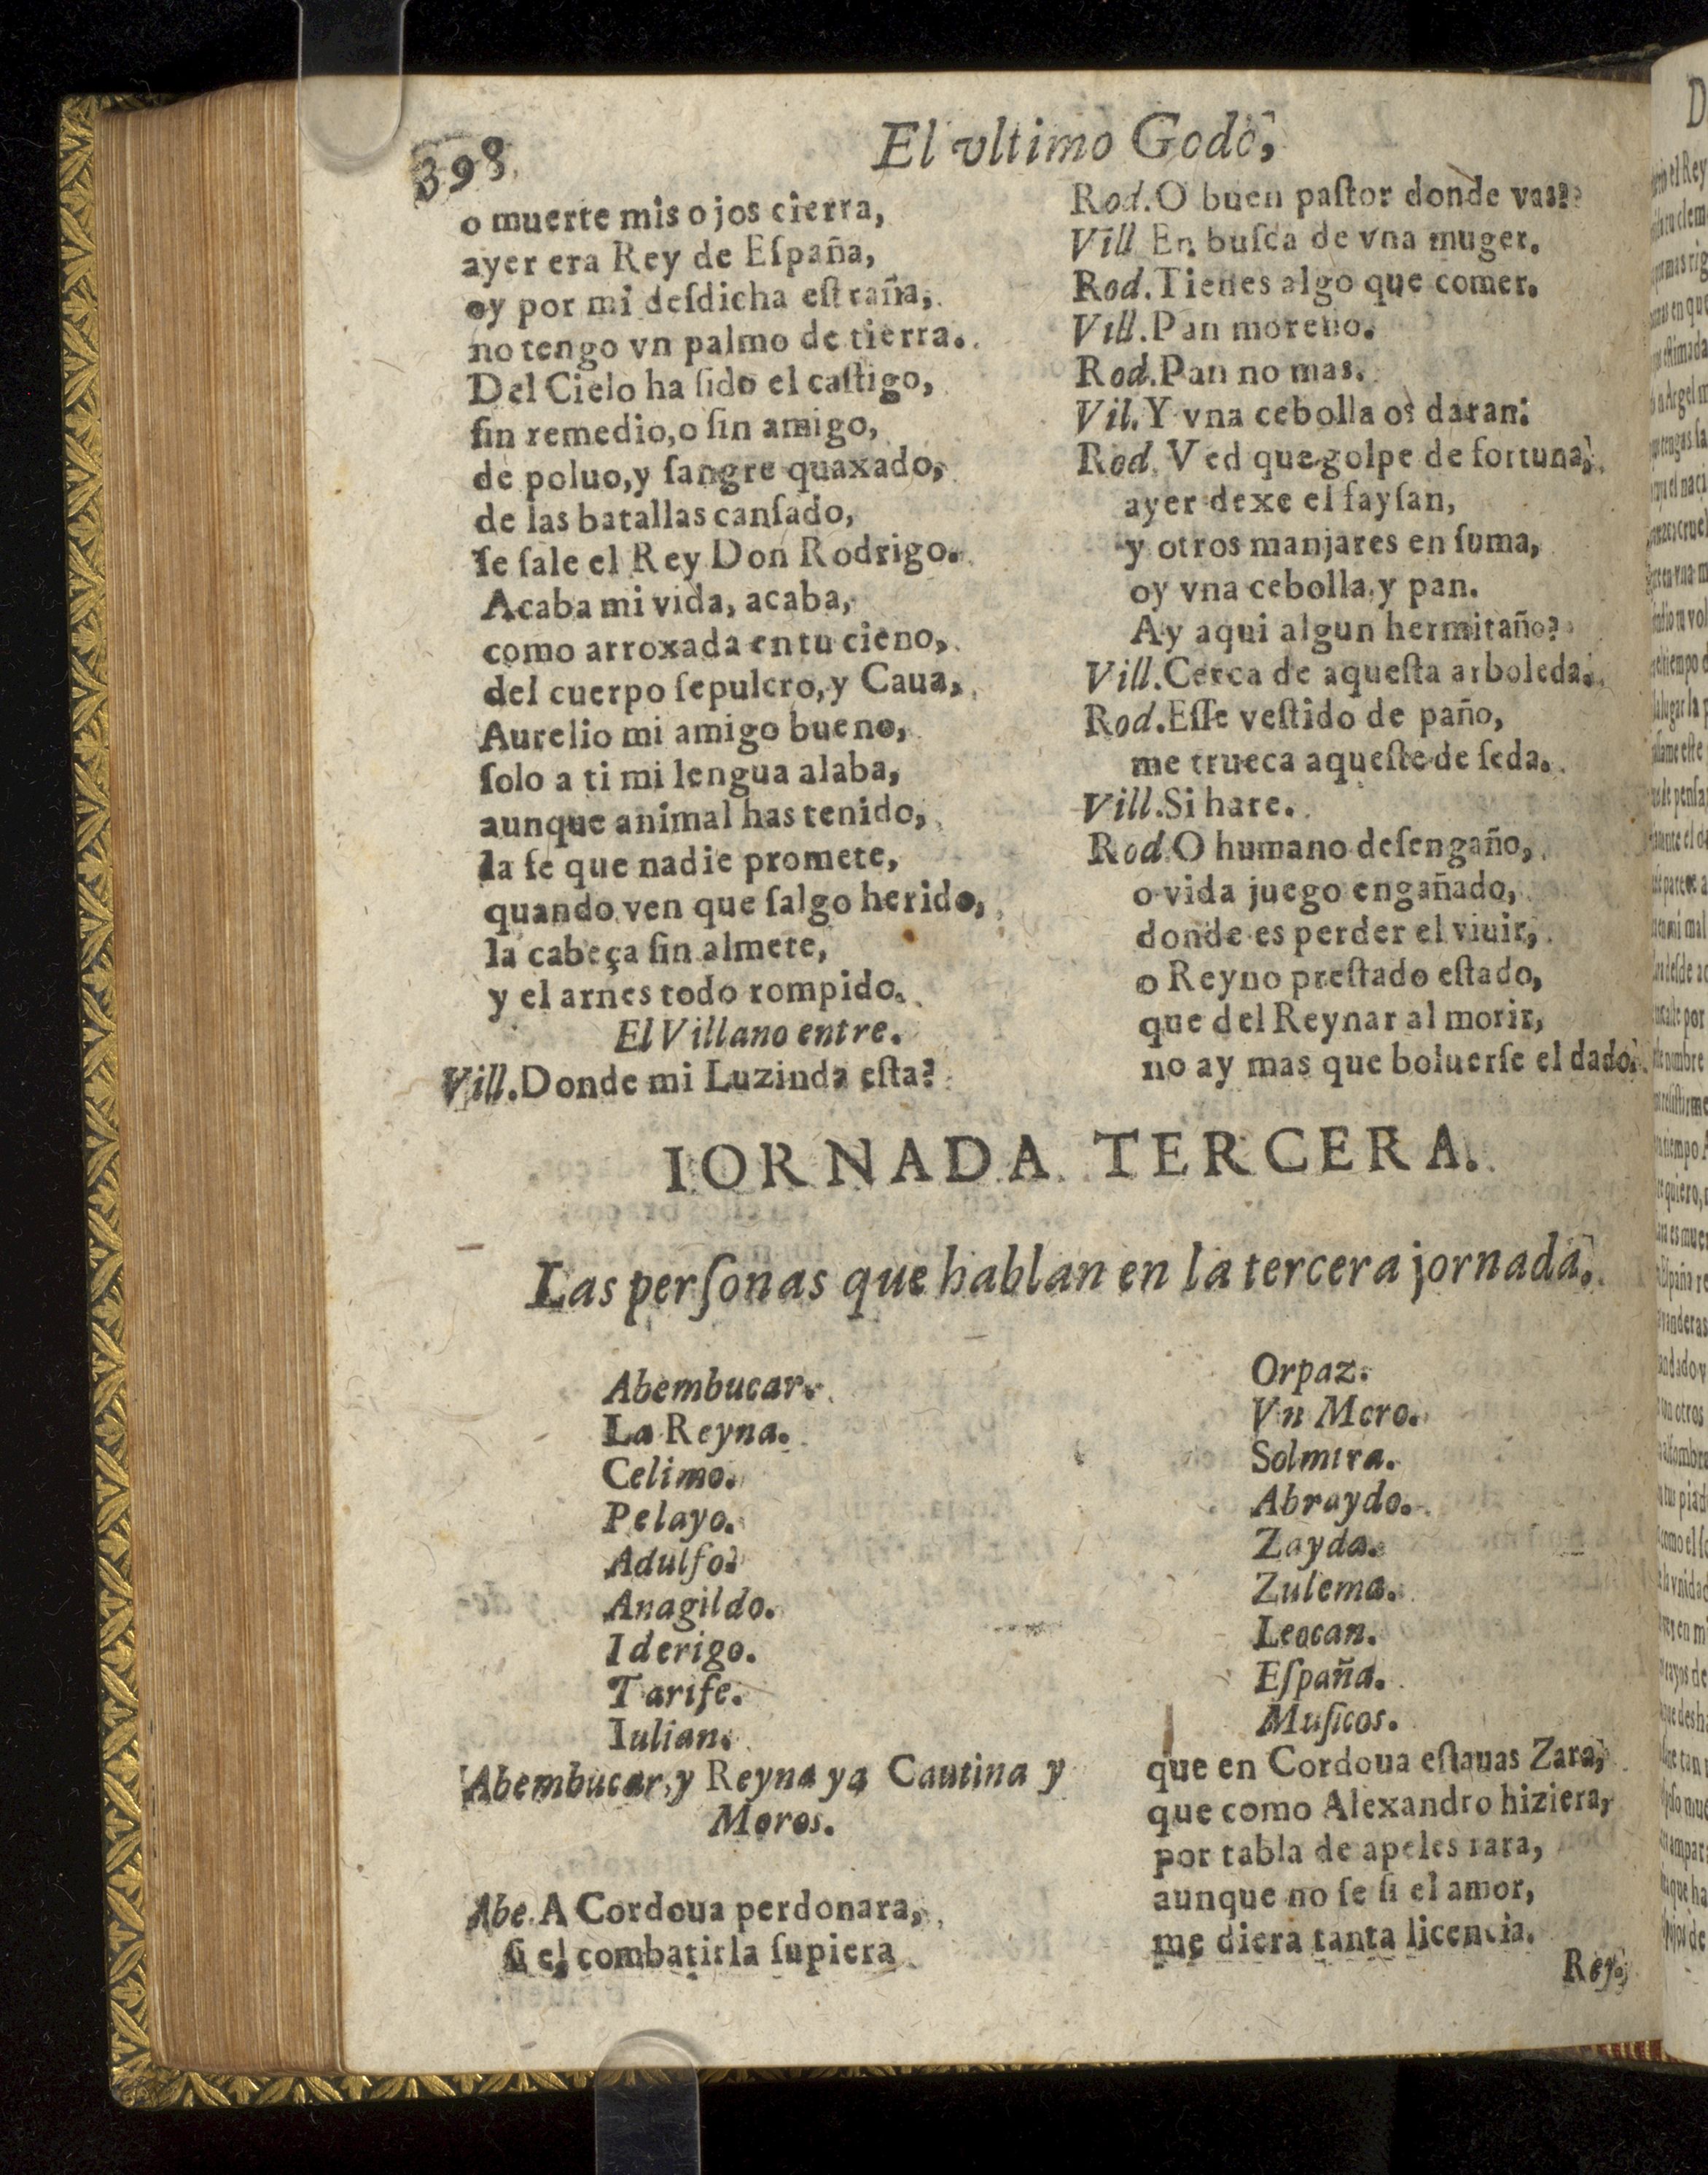 398
El vltimo Godo,
o muerte mis ojos cierra,
ayer era Rey de Eſpaña,
oy por mi deſdicha eſtraña,
no tengo vn palmo de tierra.
Del Cielo ha ſido el caſtigo,
ſin remedio,o ſin amigo,
de poluo,y ſangre quaxado,
de las batallas canſado,
ſe ſale el Rey Don Rodrigo.
Acaba mi vida, acaba,
como arroxada en tu cieno,
del cuerpo ſepulcro,y Caua,
Aurelio mi amigo bueno,
ſolo a ti mi lengua alaba,
aunque animal has tenido,
la fe que nadie promete,
quando ven que ſalgo herido,
la cabeça ſin almete,
y el arnes todo rompido.
El Villano entre.
Vill.Donde mi Luzinda eſta?
Rod.O buen paſtor donde vas?
Vill En buſca de vna muger.
Rod.Tienes algo que comer.
Vill.Pan moreno.
Rod.Pan no mas.
Vil.Y vna cebolla os daran:
Rod.Ved que golpe de fortuna,
ayer dexe el fayſan,
y otros manjares en ſuma,
oy vna cebolla,y pan.
Ay aqui algun hermitaño?
Vill.Cerca de aqueſta arboleda.
Rod.Eſſe veſtido de paño,
me trueca aqueſte de ſeda.
Vill.Si hare.
Rod.O humano deſengaño,
o vida juego engañado,
donde es perder el viuir,
o Reyno preſtado eſtado,
que del Reynar al morir,
no ay mas que boluerſe el dado.
IORNADA TERCERA.
Las perſonas que hablan en la tercera jornada.
Abembucar.
La Reyna.
Celimo.
Pelayo.
Adulfo.
Anagildo.
Iderigo.
Tarife.
Iulian.
Orpaz.
Vn Moro.
Solmira.
Abraydo.
Zayda.
Zulema.
Leocan.
Eſpaña.
Muſicos.
Abembucar,y Reyna ya Cautina y
Moros.
Abe.A Cordoua perdonara,
ſi el combatirla ſupiera
que en Cordoua eſtauas Zara,
que como Alexandro hiziera,
por tabla de apeles rara,
aunque no ſe ſi el amor,
me diera tanta licencia.
Rey.